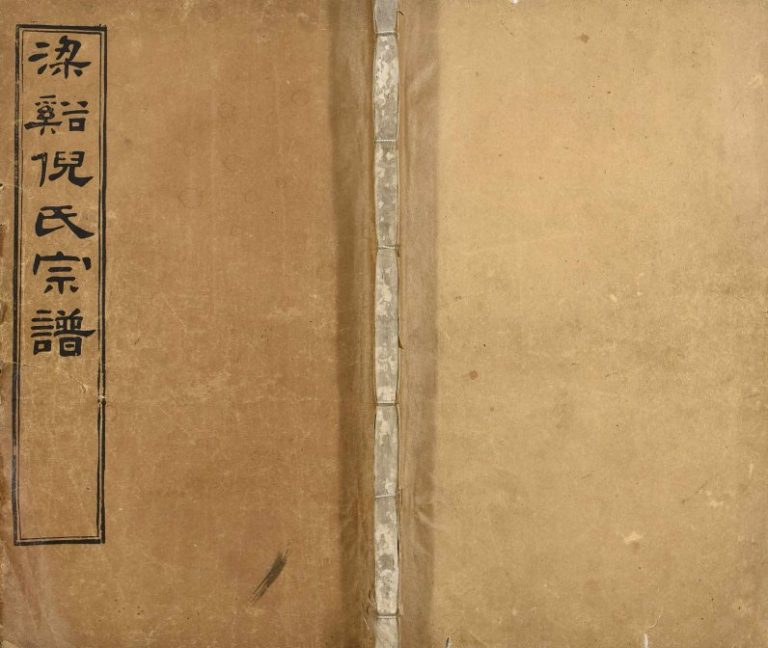 梁谿倪氏宗譜